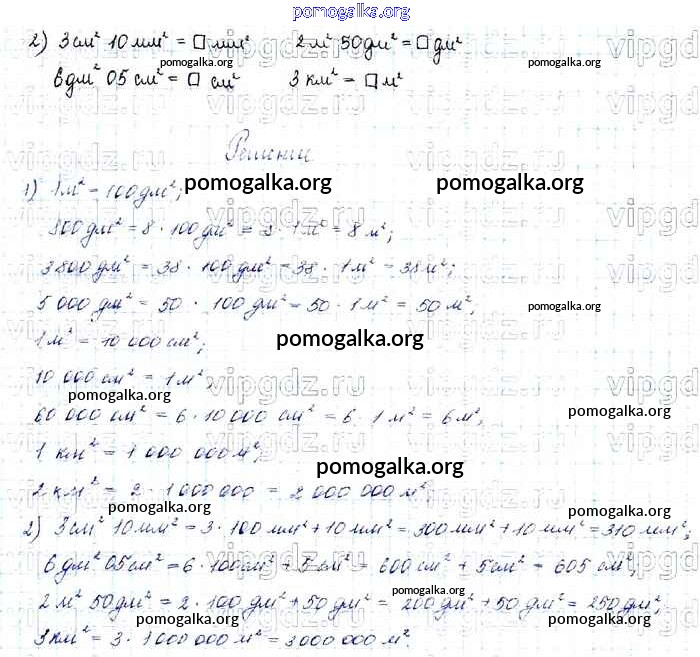 pomogalka.org
2) 3 см² 10 мм² = □ мм² 2 м² 50 дм² = □ дм²
6 дм² 05 см² = □ см² 3 км² = □ м²
Решение
1) 1 м² = 100 дм²;
800 дм² = 8 · 100 дм² = 8 · 1 м² = 8 м²;
3800 дм² = 38 · 100 дм² = 38 · 1 м² = 38 м²;
5 000 дм² = 50 · 100 дм² = 50 · 1 м² = 50 м²,
1 м² = 10 000 см²;
10 000 см² = 1 м²,
60 000 см² = 6 · 10 000 см² = 6 · 1 м² = 6 м²,
1 км² = 1 000 000 м²,
2 км² = 2 · 1 000 000 = 2 000 000 м².
2) 3 см² 10 мм² = 3 · 100 мм² + 10 мм² = 300 мм² + 10 мм² = 310 мм²;
6 дм² 05 см² = 6 · 100 см² + 5 см² = 600 см² + 5 см² = 605 см²,
2 м² 50 дм² = 2 · 100 дм² + 50 дм² = 200 дм² + 50 дм² = 250 дм²;
3 км² = 3 · 1 000 000 м² = 3 000 000 м².